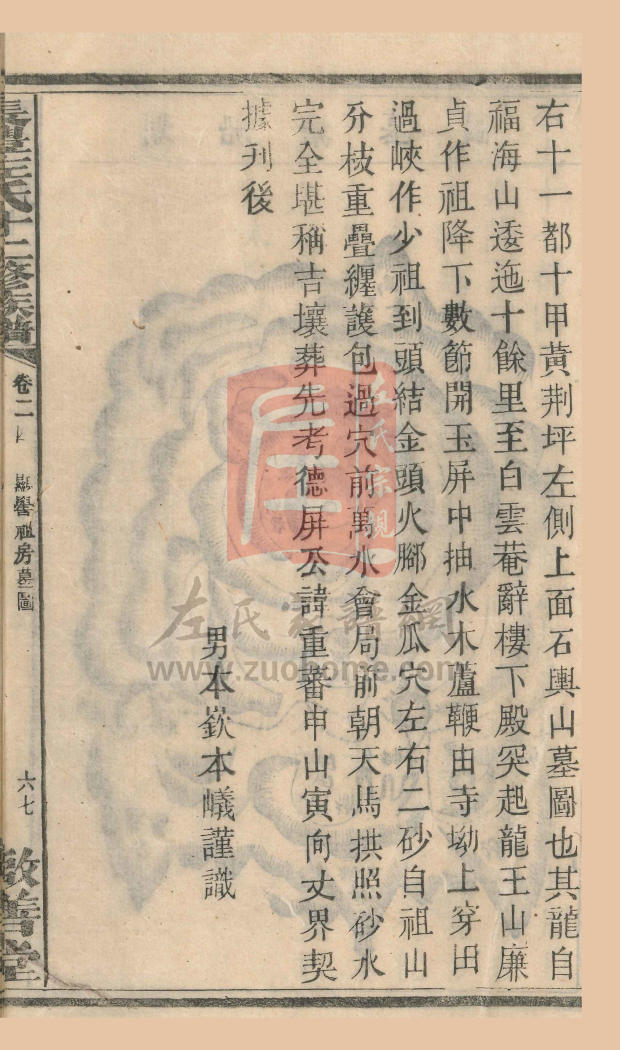 右十一都十甲黃荆坪左側上面石輿山墓圖也其龍自
福海山逶迤十餘里至白雲菴辭樓下殿突起龍王山廉
貞作祖降下數節開玉屏中抽水木蘆鞭由寺坳上穿田
過峽作少祖到頭結金頭火腳金瓜穴左右二砂自祖山
分枝重疊纏護包過穴前萬水會局前朝天馬拱照砂水
完全堪稱吉壤葬先考德屏公諱重蕃申山寅向丈界契
據刊後
男本嶔本㠖謹識
左氏十二修族譜
卷二
祖房墓圖
六七
敬善堂
左氏宗親
左氏家譜網
www.zuohome.com